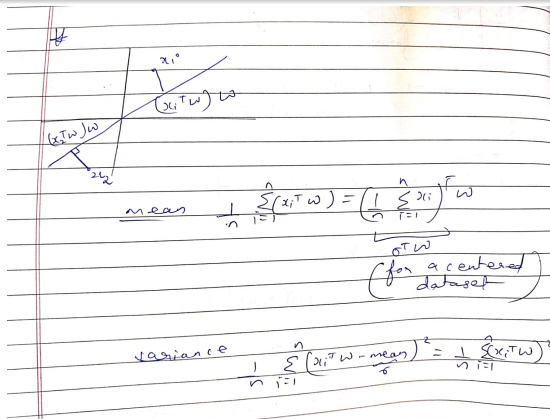 x₁
(x₁ᵀw) w
(x₂ᵀw) w
x₂
mean 1/n Σᵢ₌₁ⁿ (xᵢᵀw) = (1/n Σᵢ₌₁ⁿ xᵢ)ᵀ w
0ᵀw
(for a centered
dataset)
variance 1/n Σᵢ₌₁ⁿ (xᵢᵀw - mean)² = 1/n Σᵢ₌₁ⁿ (xᵢᵀw)²
0